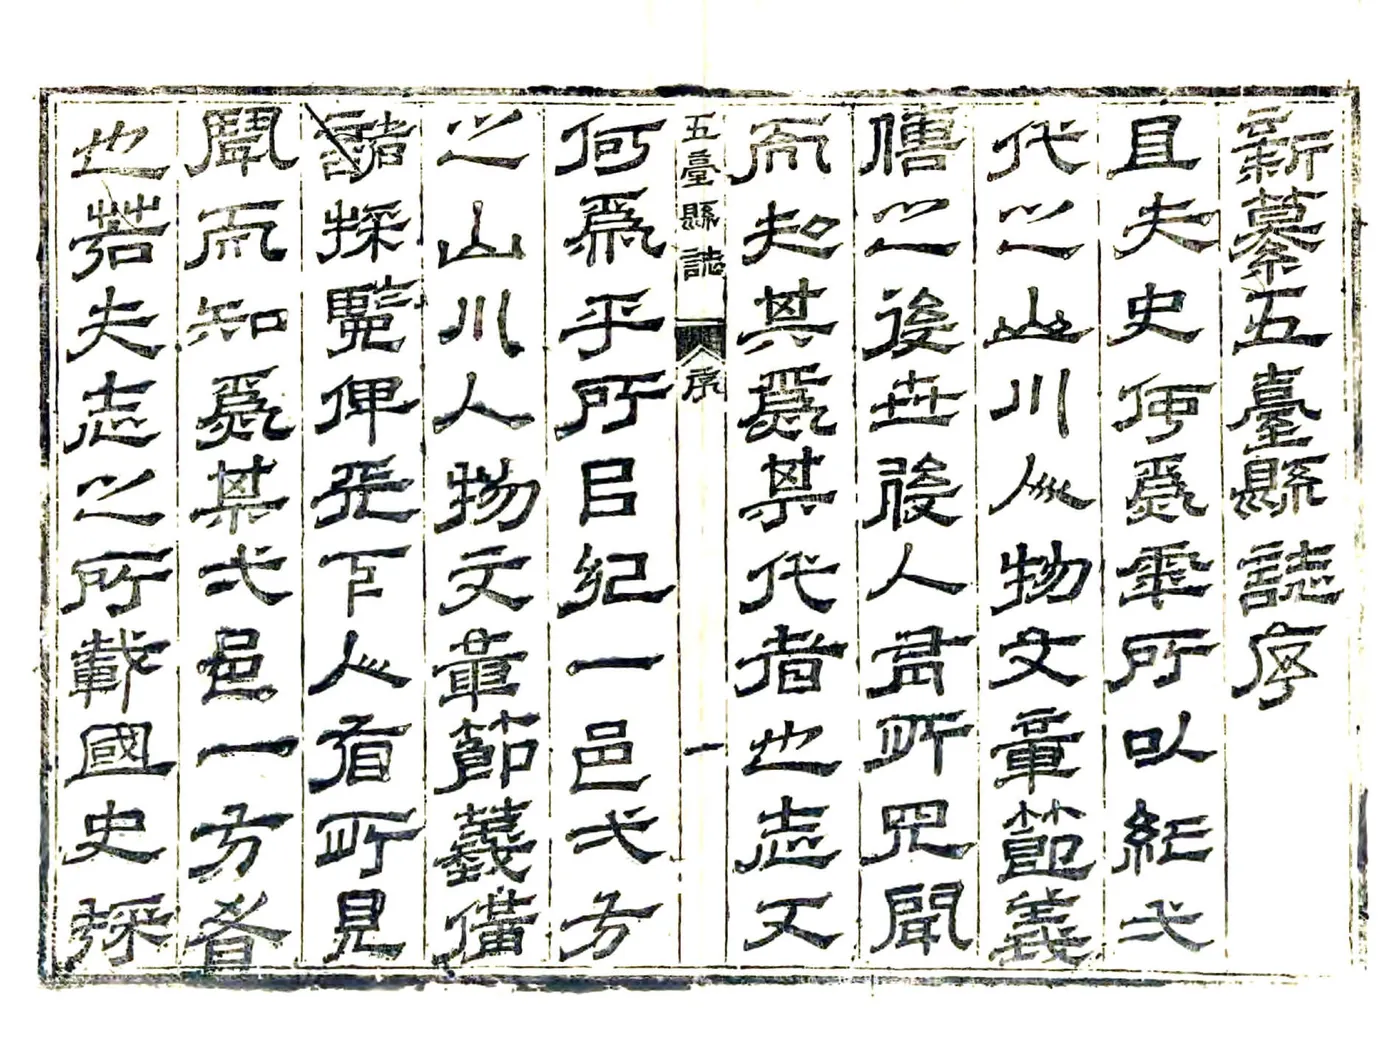 新纂五臺縣誌序
且夫史何爲乎所以紀弌
代之山川人物文章節義
俻之後世後人有所見聞
而知其爲某代者也志又
五臺縣誌
序
一
何爲乎所㠯紀一邑弌方
之山川人物文章節義備
諸採覽俾天下人有所見
聞而知爲某弌邑一方者
也若夫志之所載國史採